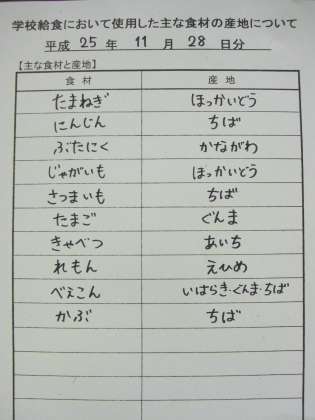 学校給食において使用した主な食材の産地について
平成 25 年 11 月 28 日分
【主な食材と産地】
食材 産地
たまねぎ ほっかいどう
にんじん ちば
ぶたにく かながわ
じゃがいも ほっかいどう
さつまいも ちば
たまご ぐんま
きゃべつ あいち
れもん えひめ
べえこん いばらき・ぐんま・ちば
かぶ ちば